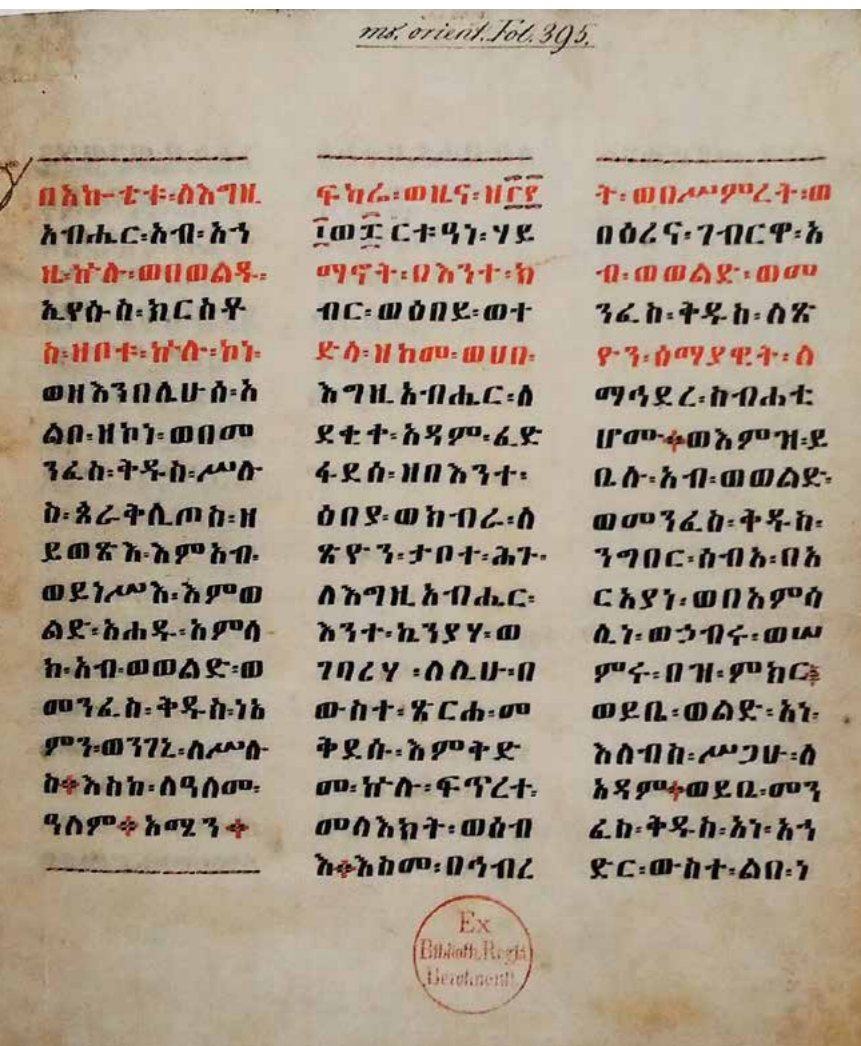 ms. orient. Fol. 395.
በአኰቴቱ፡ለእግዚ
አብሔር፡አብ፡አኀ
ዜ፡ኵሉ፡ወበወልዱ፡
ኢየሱስ፡ክርስቶ
ስ፡ዘቦቱ፡ኵሉ፡ኮነ፡
ወዘእንበሌሁሰ፡አ
ልቦ፡ዘኮነ፡ወበመ
ንፈስ፡ቅዱስ፡ሥሉ
ስ፡ጰራቅሊጦስ፡ዘ
ይወጽእ፡እምአብ፡
ወይነሥእ፡እምወ
ልድ፡አሐዱ፡አምላ
ክ፡አብ፡ወወልድ፡ወ
መንፈስ፡ቅዱስ፡ነአ
ምን፡ወንገኒ፡ለሥሉ
ስ።እስከ፡ለዓለመ፡
ዓለም።አሜን።
ፍካሬ፡ወዜና፡ዘ፫፻
፲ወ፰ርቱዓነ፡ሃይ
ማኖት፡በእንተ፡ክ
ብር፡ወዕበይ፡ወተ
ድላ፡ዘከመ፡ወሀበ፡
እግዚአብሔር፡ለ
ደቂተ፡አዳም፡ፈድ
ፋደሰ፡ዘበእንተ፡
ዕበያ፡ወክብራ፡ለ
ጽዮን፡ታቦተ፡ሕጉ፡
ለእግዚአብሔር፡
እንተ፡ኬንያሃ፡ወ
ገባሪሃ፡ለሊሁ፡በ
ውስተ፡ጽርሐ፡መ
ቅደሱ፡እምቅድ
መ፡ኵሉ፡ፍጥረተ፡
መላእክት፡ወሰብ
እ።እስመ፡በኅብረ
ት፡ወበሥምረት፡ወ
በዕሪና፡ገብርዋ፡አ
ብ፡ወወልድ፡ወመ
ንፈስ፡ቅዱስ፡ለጽ
ዮን፡ሰማያዊት፡ለ
ማኅደረ፡ስብሐቲ
ሆሙ።ወእምዝ፡ይ
ቤሉ፡አብ፡ወወልድ፡
ወመንፈስ፡ቅዱስ፡
ንግበር፡ሰብአ፡በአ
ርአያነ፡ወበአምሳ
ሊነ፡ወኃብሩ፡ወሠ
ምሩ፡በዝ፡ምክር።
ወይቤ፡ወልድ፡አነ፡
እለብስ፡ሥጋሁ፡ለ
አዳም።ወይቤ፡መን
ፈስ፡ቅዱስ፡አነ፡አኀ
ድር፡ውስተ፡ልበ፡ነ
Ex
Biblioth. Regia
Berolinensi